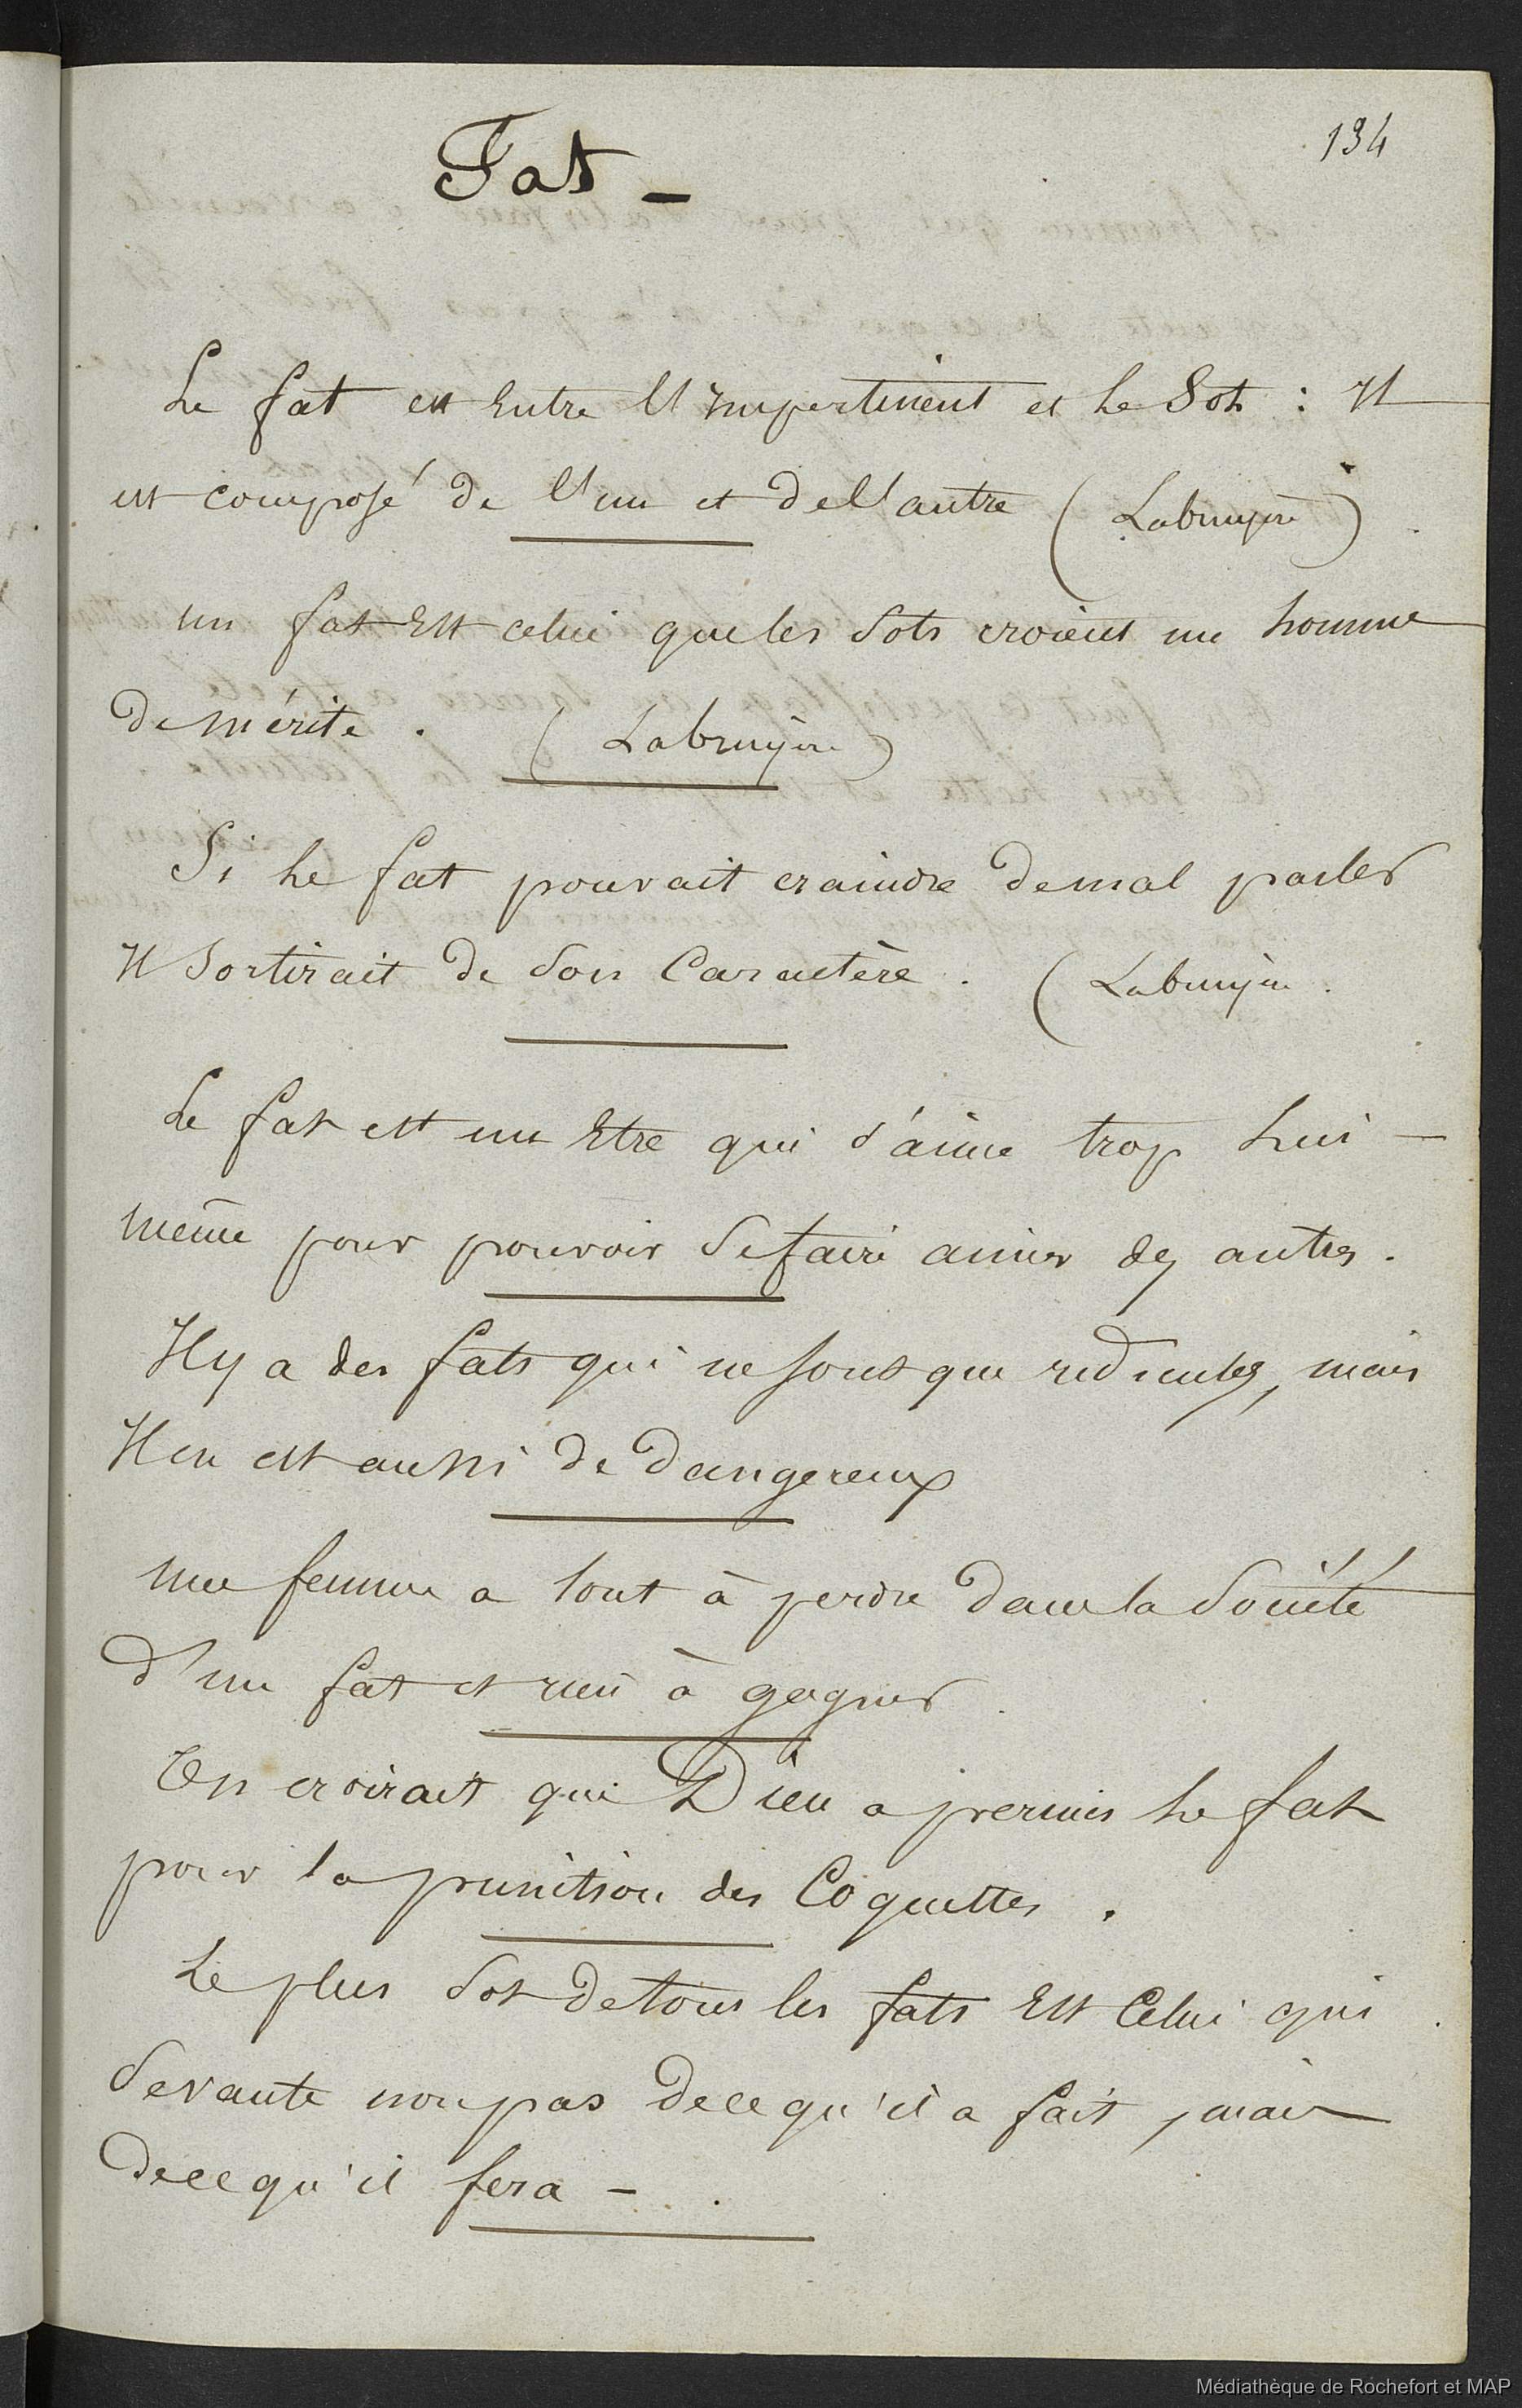 134
Fat -
Le fat est Entre l'Impertinent et le Sot : Il
est composé de l'un et de l'autre (Labruyère)
un fat Est celui que les Sots croient un homme
de mérite. (Labruyère)
Si le fat pouvait craindre de mal parler
Il Sortirait de Son Caractère. (Labruyère.
Le fat est un Etre qui s'aime trop Lui-
même pour pouvoir Se faire aimer des autres.
Il y a des fats qui ne sont que ridicules, mais
Il en est aussi de Dangereux
une femme a tout à perdre dans la Société
d'un fat et rien à gagner.
On croirait que Dieu a permis le fat
pour la punition des Coquettes.
Le plus Sot de tous les fats Est Celui qui
Se vante non pas de ce qu'il a fait, mais
de ce qu'il fera -
Médiathèque de Rochefort et MAP